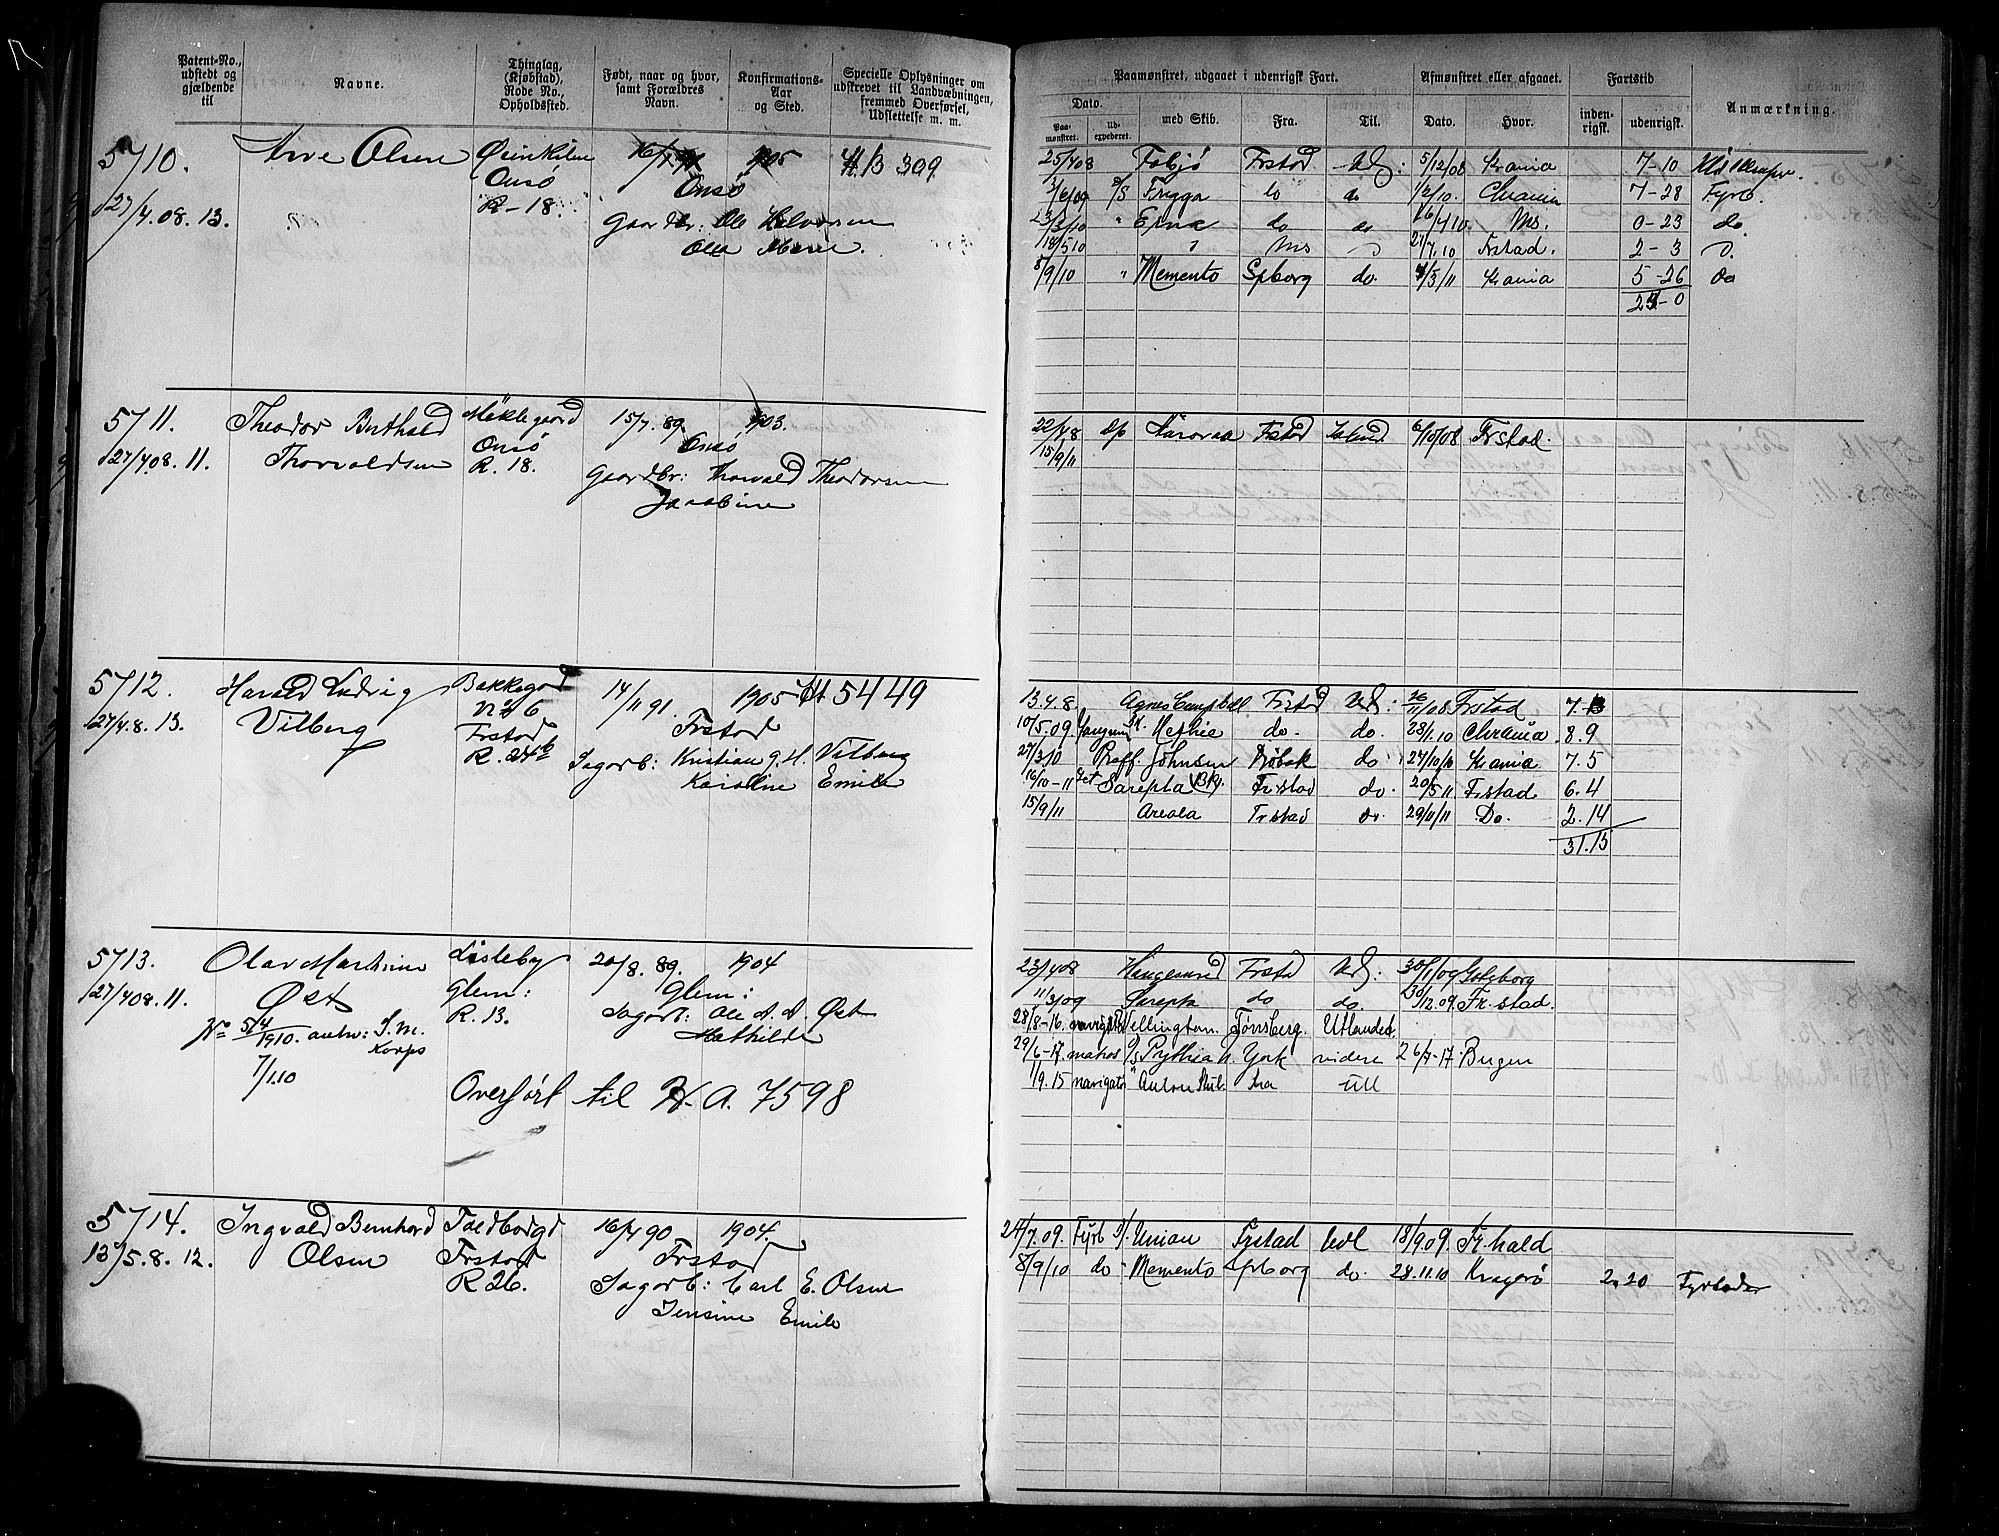 Patent-No., udstedt og gjældende til
Navne.
Thinglag, (Kjøbstad), Rode No., Opholdssted.
Født, naar og hvor, samt Forældres Navn.
Konfirmations-Aar og Sted.
Specielle Oplysninger om udskrevet til Landvæbningen, fremmed Overførsel, Udslettelse m. m.
Paamønstret, udgaaet i udenrigsk Fart.
Afmønstret eller afgaaet.
Fartstid
Anmærkning.
Dato.
Paamønstret.
Udexpederet.
med Skib.
Fra.
Til.
Dato.
Hvor.
indenrigsk.
udenrigsk.
5710. Arve Olsen
Onsø
R-18.
1905
309
27/4.08.13.
Onsø
Gaardbr: Ole Halvorsen
25/408 Frstad Ud: 5/12/08 Krania 7-10
2/6/09 D/S Frigga do do 1/2/10. Chrania 7-28 Fyrb.
23/3/10 " do do 16/4 10 Ms. 0-23 do
18/5 10 " Ms 27/7.10 Frstad. 2-3
8/9/10 " Memento Spborg do. 4/3/11 Krania 5-26 do
5711. Theodor Berthold Thorvaldsen
27/408.11.
Onsø
R. 18.
15/7.89.
1903.
Onsø
Gaardbr: Thorvald Theodorsen
Jacobine
22/4 8 Frstad 6/10/08 Frstad.
15/9/11
5712. Harald Ludvig Vilberg
27/4.8.13.
Bakkegd
No 6
Frstad
R. 24b
14/11 91.
1905
5449
Frstad
Sagarb: Kristian J. H. Vilberg
Karoline Emilie
13.4.8. Agnes Campbell Frstad Ud: 26/11/08 Frstad
10/5.09 do. do. 28/1.10 Chrania. 8.9
27/3/10 Proff. Johnsen Drøbak do 27/10/10 Krania 7.5
16/10-11 Sarepta Frstad do. 20/5 11 Frstad 6.4
15/9/11 Frstad do. 29/11/11 Do. 2.14
31.15
5713. Olav Martinius Øst
27/408.11.
Lisleby
Glem:
R. 13.
20/8.89.
1904
Glem:
Sagarb: Ole A. A. Øst
Mathilde
No 514/1910. S.M. Korps
7/1.10
Overført til H. A. 7598
23/408 Haugesund Frstad Ud: 30/1/09 Goteborg
11/3/09 Sarepta do do. 30/12.09 Fr.stad.
28/8-16. Wellington. Tønsberg. Utlandet.
29/6-17 matros D/S Pythia N. York videre 26/7-17. Bergen
1/9.15 navigatør " fra till
5714. Ingvald Bernhard Olsen
13/5.8.12.
Toldbodgd
Frstad
R 26.
16/4 90
1904.
Frstad
Sagarb: Carl E. Olsen
Jensine Emilie
24/7.09. Fyrb D/. Union Frstad Udl 18/9 09. Fr.hald
8/9/10 do " Memento Spborg do. 28.11.10 Kragerø 2.20 Fyrbøder